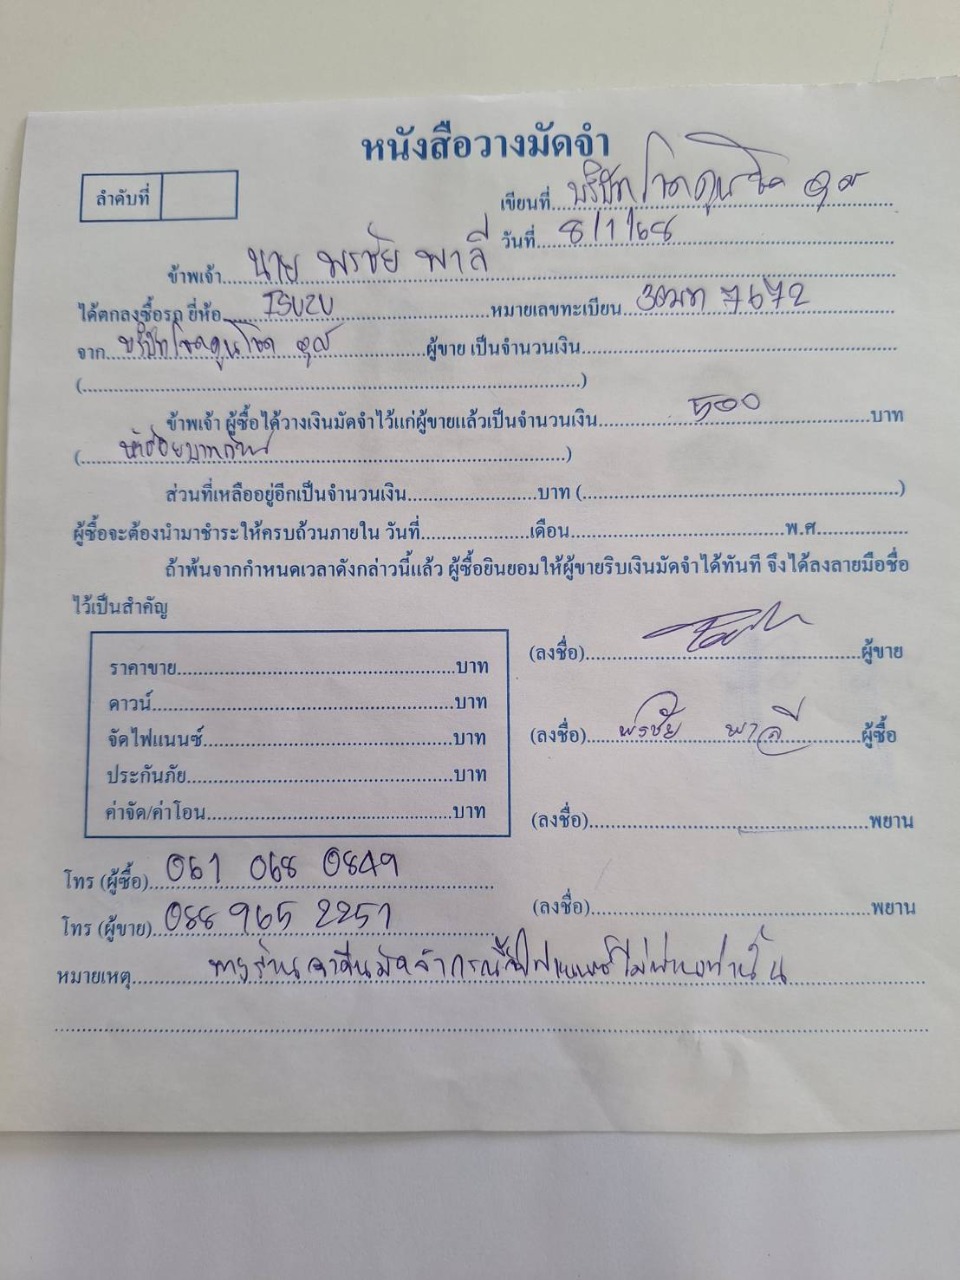 หนังสือวางมัดจำ
ลำดับที่
เขียนที่ บริษัทโชคคูนโชค
วันที่ 8/1/68
ข้าพเจ้า นาย พรชัย พาลี
ได้ตกลงซื้อรถ ยี่ห้อ ISUZU หมายเลขทะเบียน 7672
จาก บริษัทโชคคูนโชค ผู้ขาย เป็นจำนวนเงิน
(..........)
ข้าพเจ้า ผู้ซื้อได้วางเงินมัดจำไว้แก่ผู้ขายแล้วเป็นจำนวนเงิน 500 บาท
(ห้าร้อยบาทถ้วน)
ส่วนที่เหลืออยู่อีกเป็นจำนวนเงิน..........บาท (..........)
ผู้ซื้อจะต้องนำมาชำระให้ครบถ้วนภายใน วันที่..........เดือน..........พ.ศ...........
ถ้าพ้นจากกำหนดเวลาดังกล่าวนี้แล้ว ผู้ซื้อยินยอมให้ผู้ขายริบเงินมัดจำได้ทันที จึงได้ลงลายมือชื่อ
ไว้เป็นสำคัญ
ราคาขาย..........บาท
ดาวน์..........บาท
จัดไฟแนนซ์..........บาท
ประกันภัย..........บาท
ค่าจัด/ค่าโอน..........บาท
(ลงชื่อ)..........ผู้ขาย
(ลงชื่อ) พรชัย พาลี ผู้ซื้อ
(ลงชื่อ)..........พยาน
(ลงชื่อ)..........พยาน
โทร (ผู้ซื้อ) 061 068 0849
โทร (ผู้ขาย) 088 965 2251
หมายเหตุ ทางร้านจะคืนมัดจำกรณียื่นไฟแนนซ์ไม่ผ่านเท่านั้น